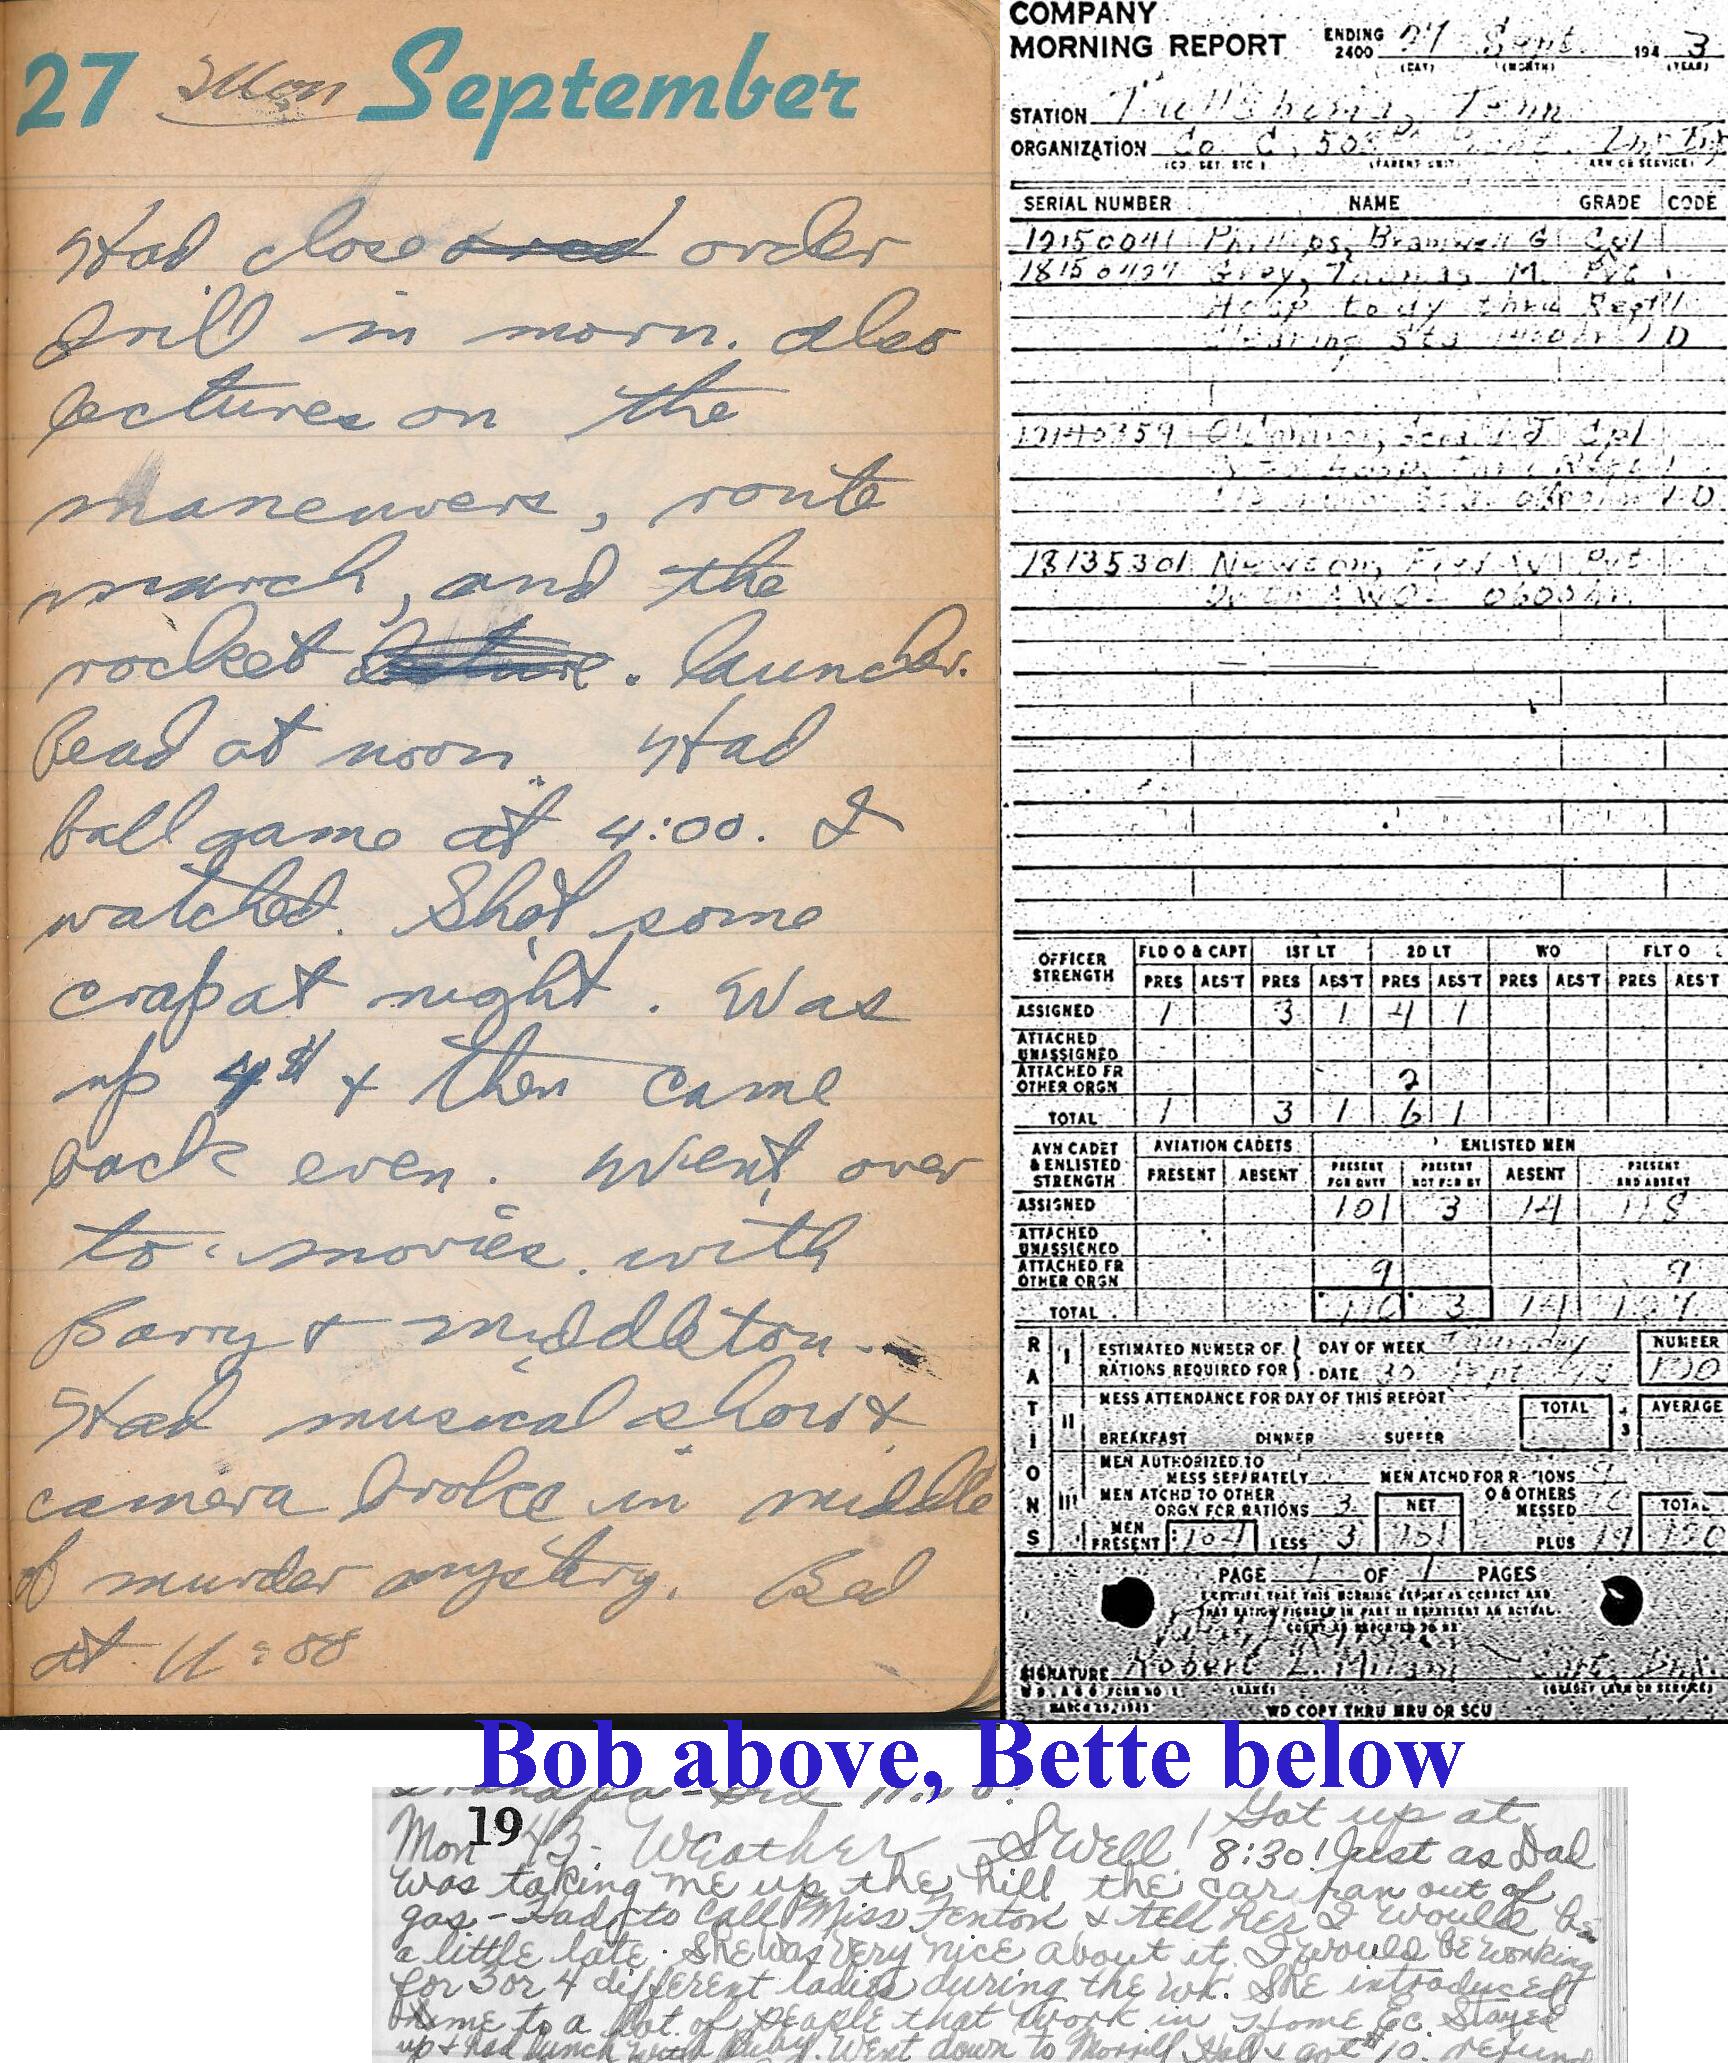 27 Mon September
Had close order
drill in morn. also
lectures on the
maneuvers, route
march, and the
rocket lecture. launcher.
Read at noon. Had
ball game at 4:00. I
watched. Shot some
crap at night. Was
up 4$ & then came
back even. Went over
to movies with
Barry & Middleton.
Had musical show &
camera broke in middle
of murder mystery. Bed
at 11:00
COMPANY
MORNING REPORT ENDING 2400 27 Sept. 194 3
(DAY) (MONTH) (YEAR)
STATION Tullahoma, Tenn
ORGANIZATION Co C,
(CO. DET. ETC.) (PARENT UNIT) (ARM OR SERVICE)
SERIAL NUMBER NAME GRADE CODE
19150041 Phillips, Bramwell G Cpl
Gray, Thomas M. Pvt
Hosp to dy thru Regtl
Clearing Sta LD
Cpl
LD
18135301 Newcom, Fred W Pvt
Dy to AWOL 0600 hr
OFFICER STRENGTH FLD O & CAPT 1ST LT 2D LT WO FLT O
PRES ABS'T PRES ABS'T PRES ABS'T PRES ABS'T PRES ABS'T
ASSIGNED 1 3 1 4 1
ATTACHED UNASSIGNED
ATTACHED FR OTHER ORGN 2
TOTAL 1 3 1 6 1
AVN CADET & ENLISTED STRENGTH AVIATION CADETS ENLISTED MEN
PRESENT ABSENT PRESENT FOR DUTY PRESENT NOT FOR DY ABSENT PRESENT AND ABSENT
ASSIGNED 101 3 14 118
ATTACHED UNASSIGNED
ATTACHED FR OTHER ORGN 9 9
TOTAL 110 3 14 127
RATIONS
I ESTIMATED NUMBER OF RATIONS REQUIRED FOR DAY OF WEEK Thursday NUMBER
DATE 30 Sept 43 120
II MESS ATTENDANCE FOR DAY OF THIS REPORT TOTAL ÷ 3 AVERAGE
BREAKFAST DINNER SUPPER
III MEN AUTHORIZED TO MESS SEPARATELY MEN ATCHD FOR RATIONS 9
MEN ATCHD TO OTHER ORGN FOR RATIONS 3 NET O & OTHERS MESSED 10 TOTAL
MEN PRESENT 104 LESS 3 101 PLUS 19 120
PAGE 1 OF 1 PAGES
I CERTIFY THAT THIS MORNING REPORT IS CORRECT AND
THAT RATION FIGURES IN PART II REPRESENT AN ACTUAL
COUNT AS REPORTED TO ME
SIGNATURE Robert L. Milam
W D, A G O FORM NO 1 (NAME) (GRADE) (ARM OR SERVICE)
MARCH 25, 1943 WD COPY THRU MRU OR SCU
Bob above, Bette below
Mon 1943 - Weather - Swell! Got up at
8:30! Just as Dad
was taking me up the hill the car ran out of
gas - Had to call Miss Fenton & tell her I would be
a little late. She was very nice about it. I would be working
for 3 or 4 different ladies during the wk. She introduced
me to a lot of people that work in Home Ec. Stayed
up & had lunch with Ruby. Went down to Morrill Hall & got $10. refund